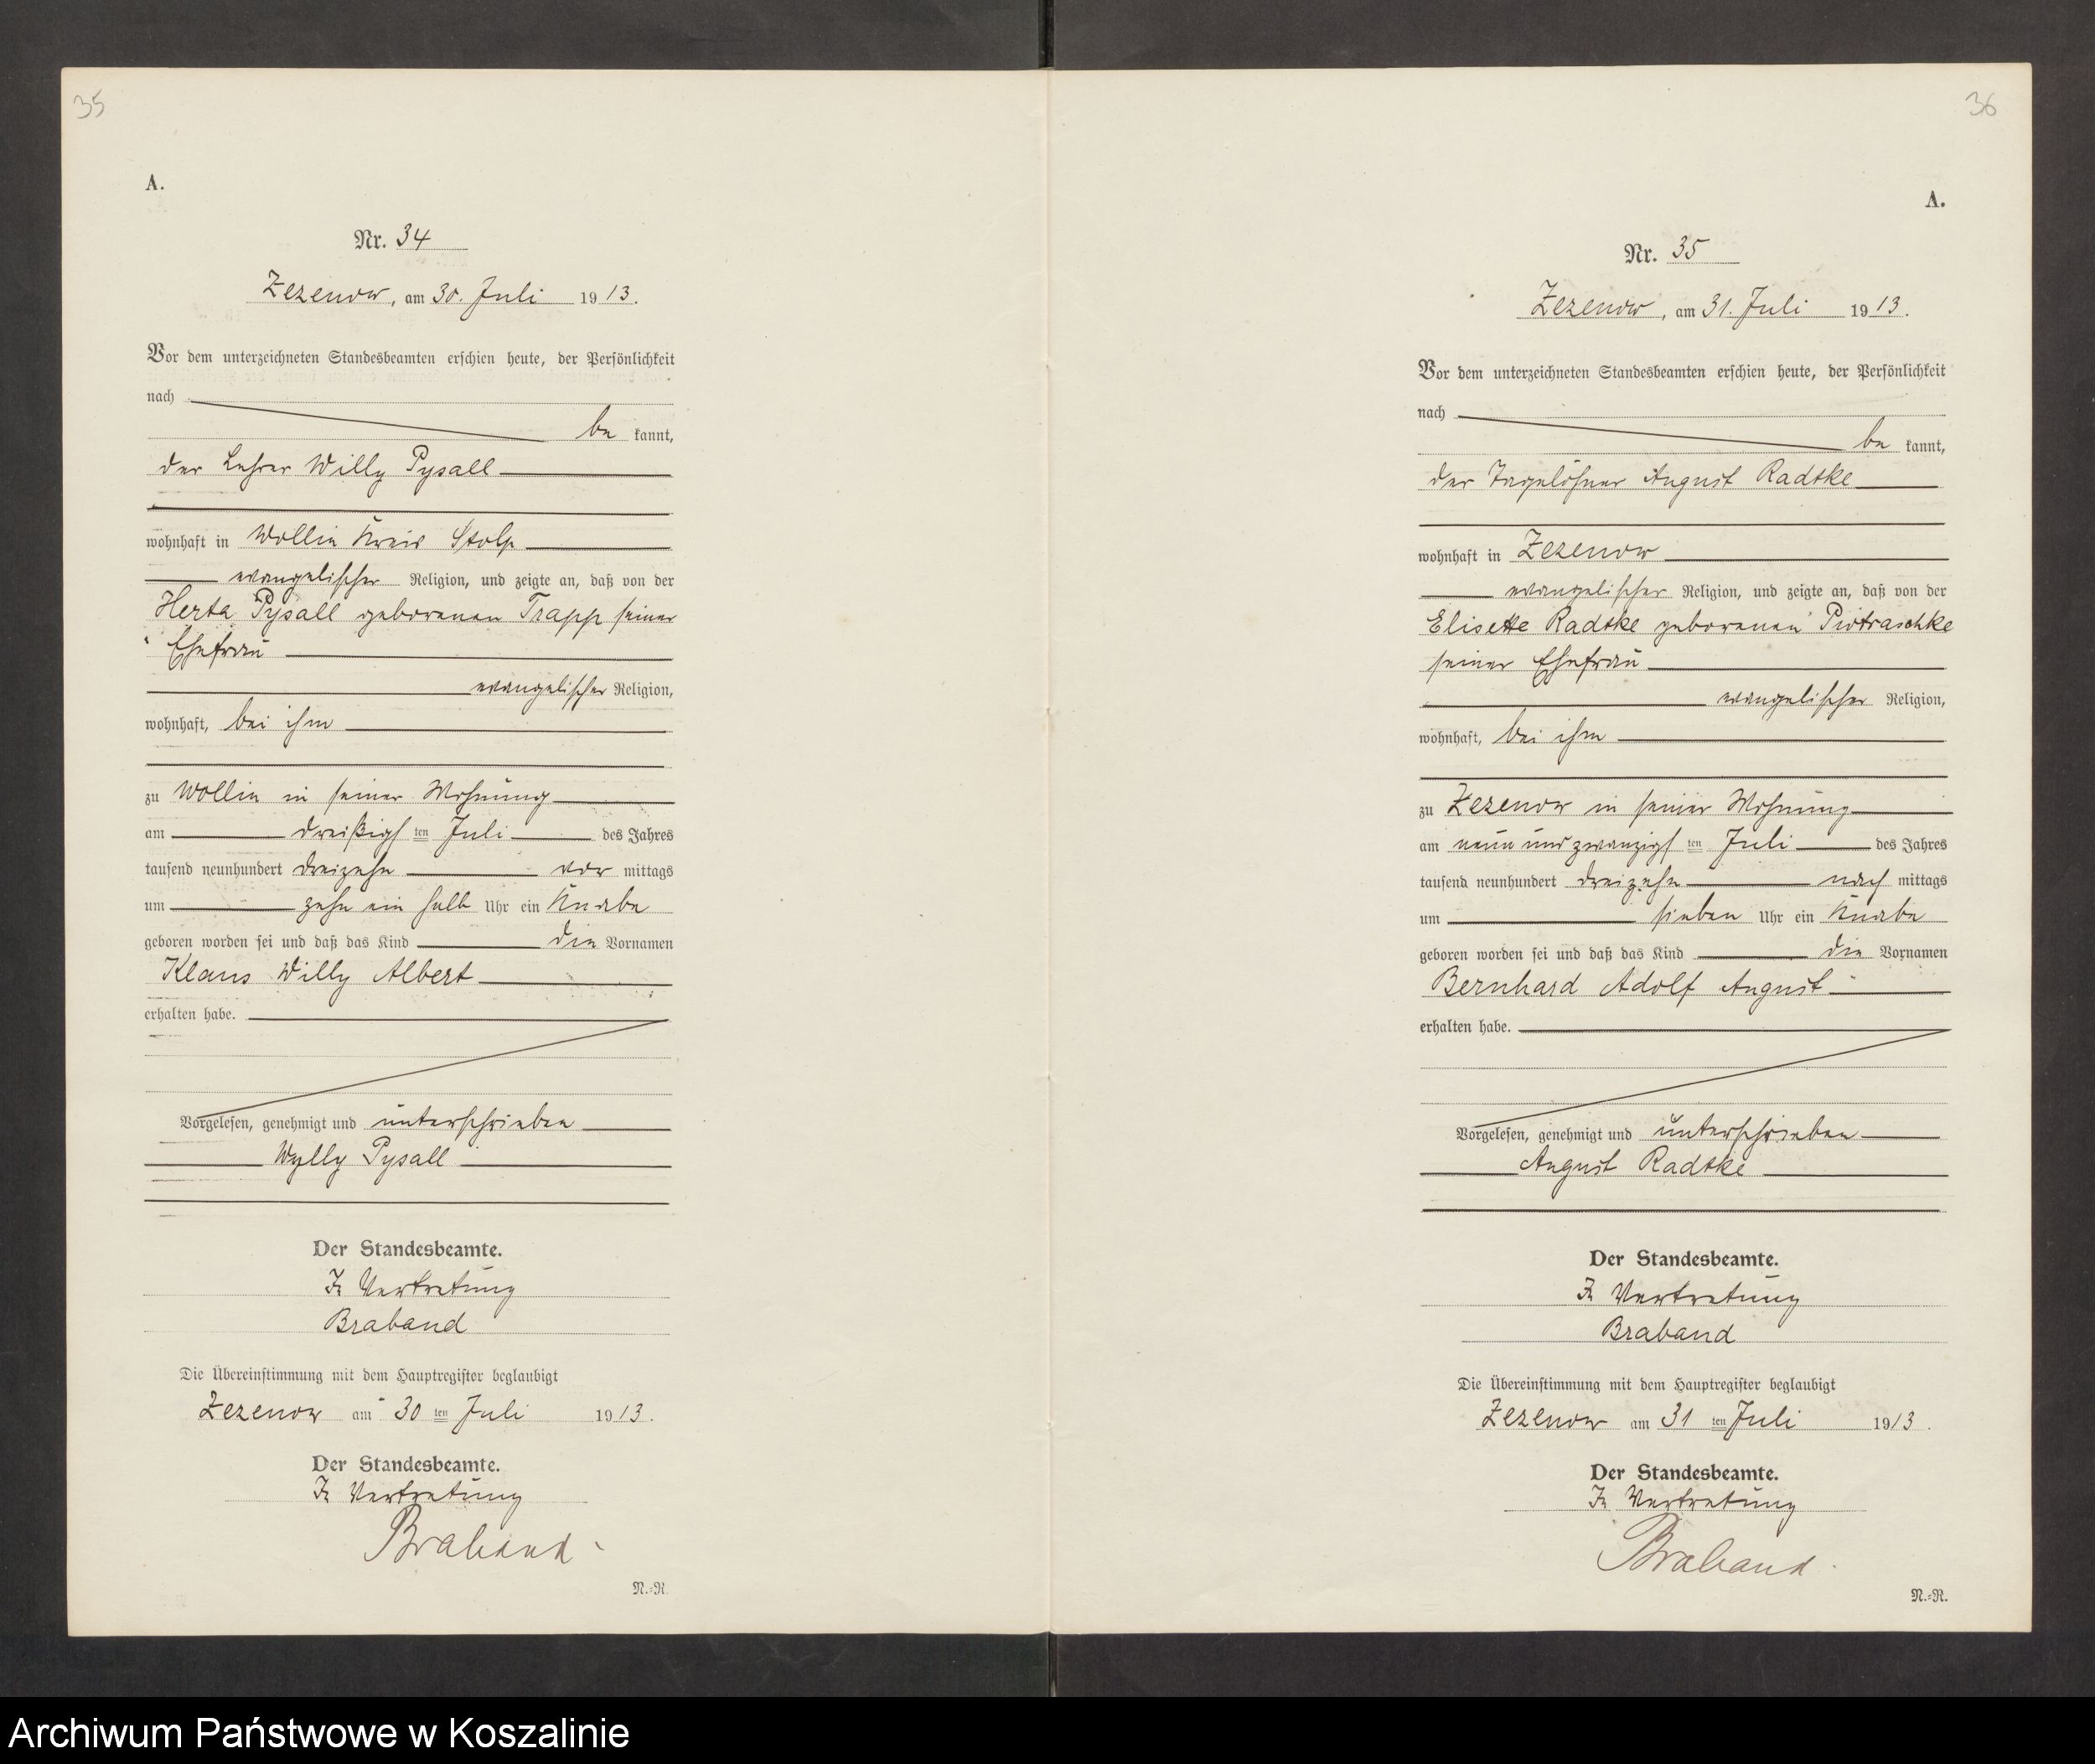 35
A.
Nr. 34
Zezenow, am 30. Juli 1913.
Vor dem unterzeichneten Standesbeamten erschien heute, der Persönlichkeit
nach
be kannt,
der Lehrer Willy Pysall
wohnhaft in Wollin Kreis Stolp
evangelischer Religion, und zeigte an, daß von der
Herta Pysall geborenen Trapp seiner
Ehefrau
evangelischer Religion,
wohnhaft, bei ihm
zu Wollin in seiner Wohnung
am dreißigs ten Juli des Jahres
tausend neunhundert dreizehn vor mittags
um zehn ein halb Uhr ein Knabe
geboren worden sei und daß das Kind die Vornamen
Klaus Willy Albert
erhalten habe.
Vorgelesen, genehmigt und unterschrieben
Wylly Pysall
Der Standesbeamte.
In Vertretung
Braband
Die Übereinstimmung mit dem Hauptregister beglaubigt
Zezenow am 30 ten Juli 1913.
Der Standesbeamte.
In Vertretung
Braband
N.-R.
36
A.
Nr. 35
Zezenow, am 31. Juli 1913.
Vor dem unterzeichneten Standesbeamten erschien heute, der Persönlichkeit
nach
be kannt,
der Tagelöhner August Radtke
wohnhaft in Zezenow
evangelischer Religion, und zeigte an, daß von der
Elisette Radtke geborenen Piotraschke
seiner Ehefrau
evangelischer Religion,
wohnhaft, bei ihm
zu Zezenow in seiner Wohnung
am neun und zwanzigs ten Juli des Jahres
tausend neunhundert dreizehn nach mittags
um sieben Uhr ein Knabe
geboren worden sei und daß das Kind die Vornamen
Bernhard Adolf August
erhalten habe.
Vorgelesen, genehmigt und unterschrieben
August Radtke
Der Standesbeamte.
In Vertretung
Braband
Die Übereinstimmung mit dem Hauptregister beglaubigt
Zezenow am 31 ten Juli 1913.
Der Standesbeamte.
In Vertretung
Braband.
N.-R.
Archiwum Państwowe w Koszalinie